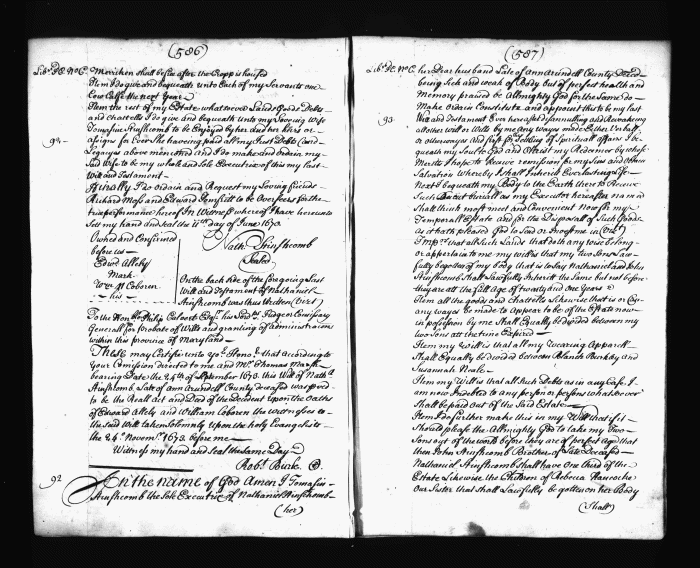 (586)
Merriken shall be sue after the Cropp is housed
Item I do give and bequeath unto Each of my Servants one
Cow Calfe the next Year
Item the rest of my Estate whatsoever Lands Goods Debts
and Chattells I do give and bequeath unto my Loveing Wife
to be Enjoyed by her and her heirs or
assigns for Ever She haveing paid all my Just Debts and
Legacyes above mentioned and I do make and ordain my
Said Wife to be my whole and Sole Executrix of this my last
Will and Testament
Finally I do ordain and Request my Loveing friends
Richard Moss and Edward to be Overseers for the
true performance hereof In Witness whereof I have hereunto
Set my hand and seal the 11th day of June 1670.
Owned and Confirmed
before us
Nath: Stinchcomb
Sealed
Edwd Alleby
Mark
Wm Coboren
his
On the back side of the foregoing Last
Will and Testament of Nathaniel
Stinchcomb was thus written (Viz.t)
To the Honble Philip Calvert Esqr. his Judge or Comissary
Generall for probate of Wills and granting of administracon
within this province of Maryland
These may Certifie unto yor. Honor. that according to
Your Comission directed to me and Mr. Thomas Marsh
bearing Date the 24th of September 1673. this Will of Nathl.
Stinchcomb, Late of ann arundell County deceased was proved
to be the Reall act and Deed of the Decedent upon the Oaths
of Edward Allely and William Coboren the witnesses to
the said Will taken Solemnly upon the holy Evangelists
the 24th. Novemr. 1673 before me
Witness my hand and seal the Same Day
Robt. Burk.
92
In the name of God Amen I
Stinchcomb the Sole Executrix of Nathaniel Stinchcomb
(her)
(587)
her Dear husband Late of ann arundell County Deced
being Sick and weak of Body but of perfect health and
Memory praised be Allmighty God for the Same do
Make Ordain Constitute and appoint this to be my last
93
Will and Testament Ever hereafter disannulling and Revokeing
all other will or Wills by me any wayes made Either Verball
or otherwayes and first for Setling of Spirituall affairs I be-
queath my Soul to God and Christ my Redeemer by whose
Merits I hope to Receive remission for my Sins and Obtain
Salvation whereby I shall Inherit Everlasting Life
Next I bequeath my Body to the Earth there to Receive
Such Decent buriall as my Executor hereafter named
Shall think most meet and Convenient Now for my
Temporall Estate and for the Disposall of Such Goods
as it hath pleased God to Send or Invest me in (Vizt)
Imps. that all Such Lands that doth any wise belong
or appertain to me my will is that my two Sons Law-
fully begotten of my body that is to say Nathaniel and John
Stinchcomb Shall Lawfully inherit the Same but not before
they are at the full Age of twenty and one Years
Item all the goods and chattells Likewise that is or Can
any wayes be made to appear to be of the Estate now
in possession by me Shall Equally be divided between my
two Sons att the time Expired
Item my Will is that all my Wearing Apparell
Shall Equally be divided between Blanch and
Susannah Neale
Item my Will is that all Such Debts as in any Case I
am now Indebted to any person or persons whatsoever
Shall be paid out of the Said Estate
Item I do further make this in my Will that if it
Should please the Allmighty God to take my two
Sons out of the world before they are of perfect Age that
then John Stinchcomb Brother of Late Deceased
Nathaniel Stinchcomb Shall have one third of the
Estate Likewise the Children of Rebecca
our Sister that shall Lawfully be gotten on her Body
(Shall)